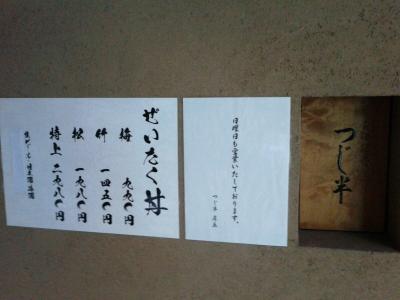 つじ半
日曜日も営業いたしております。
つじ半 店主
ぜいたく丼
梅 九九〇円
竹 一四五〇円
松 一九八〇円
特上 二九八〇円